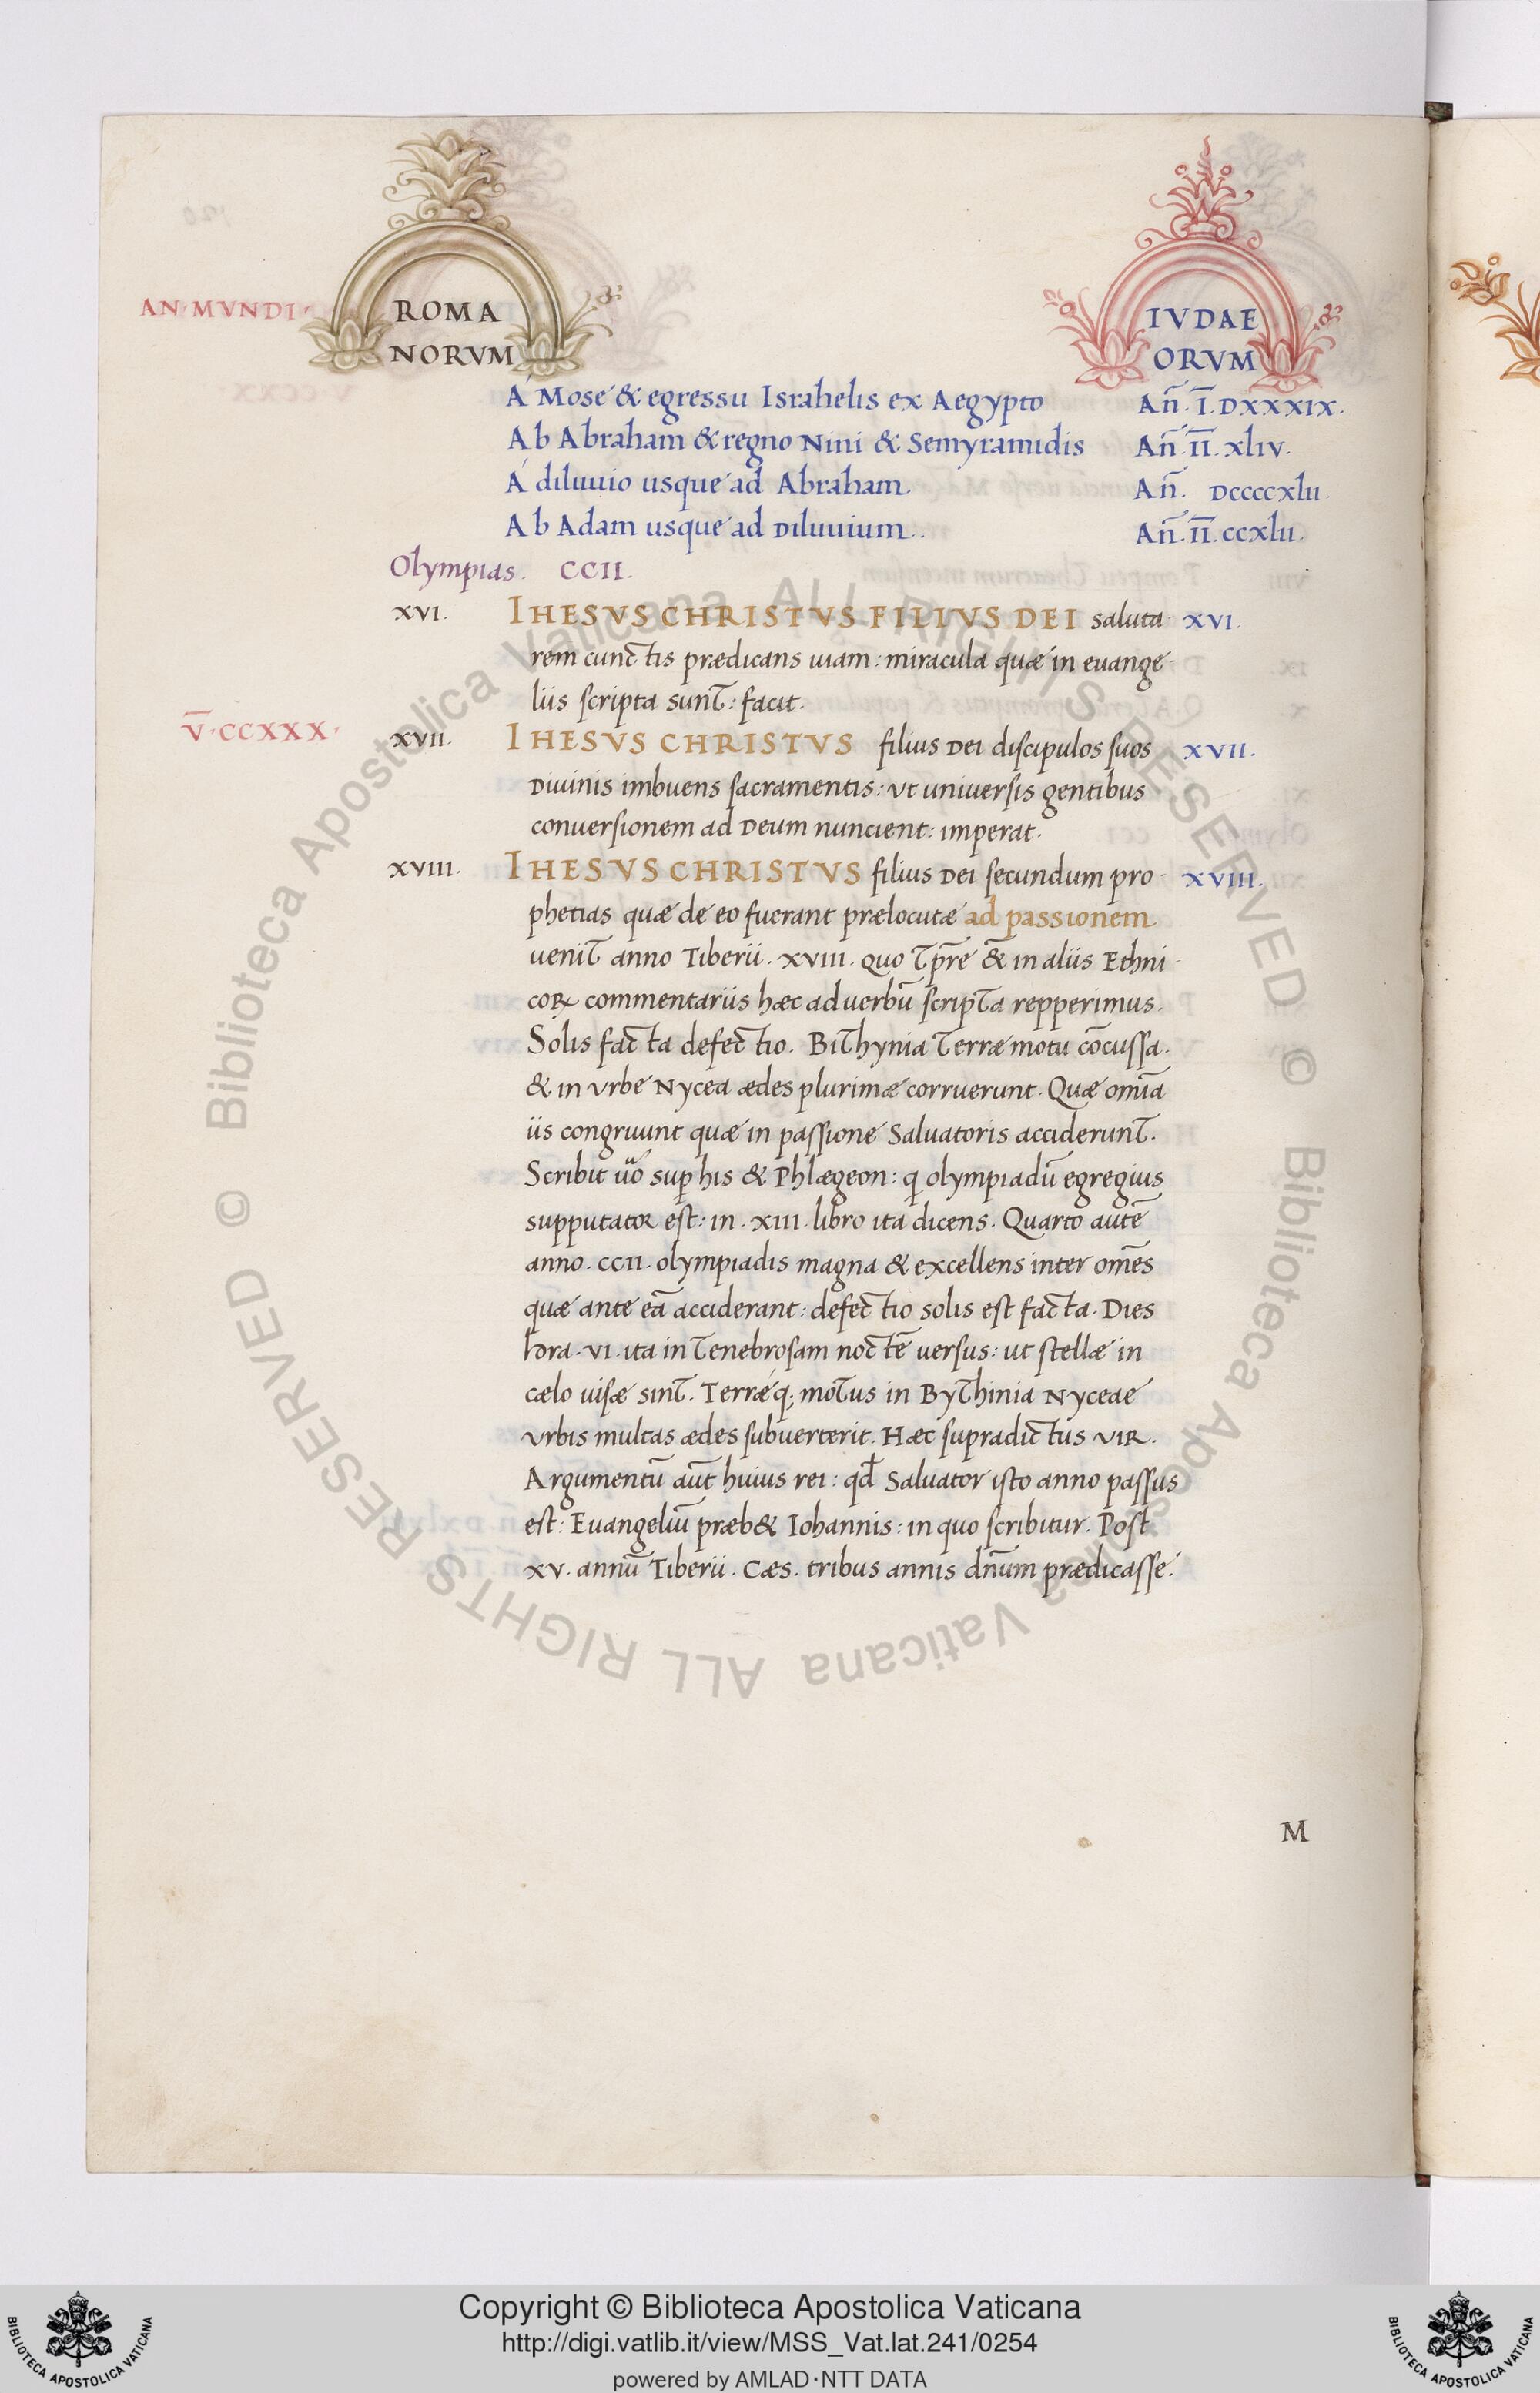 AN MVNDI
ROMA
NORVM
IVDAE
ORVM
A Mose & egressu Israhelis ex Aegypto An̄. I̅. DXXXIX.
Ab Abraham & regno Nini & Semyramidis An̄. I̅I̅. xliv.
A diluuio usque ad Abraham. An̄. Dccccxlii.
Ab Adam usque ad Diluuium. An̄. I̅I̅. ccxlii.
Olympias. CCII.
xvi. IHESVS CHRISTVS FILIVS DEI saluta- xvi.
rem cunctis prædicans uiam: miracula quæ in euange-
liis scripta sunt: facit.
V̅·CCXXX·
xvii. IHESVS CHRISTVS filius Dei discipulos suos xvii.
Diuinis imbuens sacramentis: vt uniuersis gentibus
conuersionem ad Deum nuncient: imperat.
xviii. IHESVS CHRISTVS filius Dei secundum pro- xviii.
phetias quæ de eo fuerant prælocutæ ad passionem
uenit anno Tiberii. xviii. quo tp̄re & in aliis Ethni-
coꝝ commentariis hæc ad uerbū scripta repperimus.
Solis facta defectio. Bithynia terræ motu cōcussa.
& in vrbe Nycea ædes plurimæ corruerunt. Quæ omīa
iis congruunt quæ in passione Saluatoris acciderunt.
Scribit u̅o sup̱ his & Phlægeon: q olympiadū egregius
supputator est: in. xiii. libro ita dicens. Quarto autē
anno. ccii. olympiadis magna & excellens inter omēs
quæ ante eā acciderant: defectio solis est facta. Dies
hora. vi. ita in tenebrosam noctē uersus: ut stellæ in
cælo uisæ sint. Terræq; motus in Bythinia Nyceae
vrbis multas ædes subuerterit. Hæc supradictus vir.
Argumentū aūt huius rei: qd̄ Saluator isto anno passus
est: Euangeliū præb& Iohannis: in quo scribitur. Post
xv. annū Tiberii. Cæs. tribus annis dn̄um prædicasse.
M
© Biblioteca Apostolica Vaticana ALL RIGHTS RESERVED © Biblioteca Apostolica Vaticana ALL RIGHTS RESERVED
Copyright © Biblioteca Apostolica Vaticana
http://digi.vatlib.it/view/MSS_Vat.lat.241/0254
powered by AMLAD·NTT DATA
BIBLIOTECA APOSTOLICA VATICANA
BIBLIOTECA APOSTOLICA VATICANA